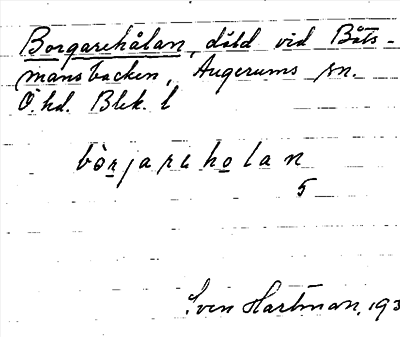 Borgarehålan, däld vid Båts-
mansbacken, Augerums sn.
Ö. hd. Blek. l
bòrjareholan
5
Sven Hartman, 193